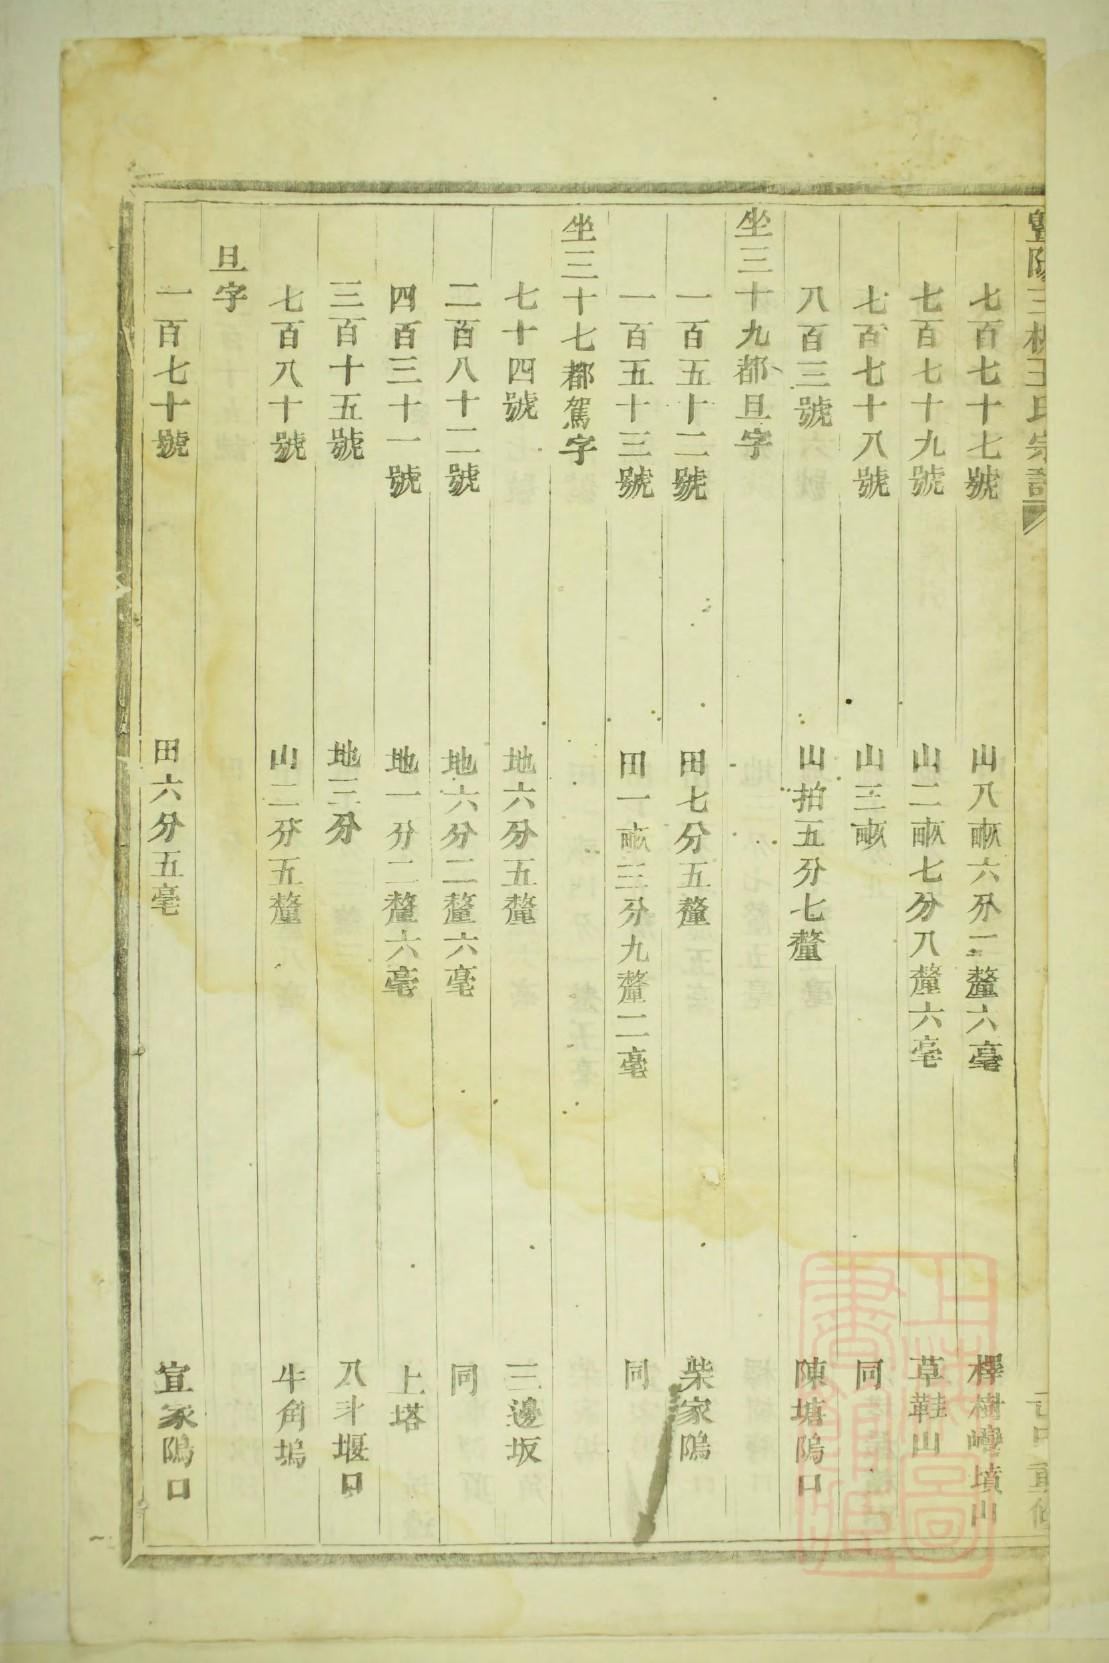 暨陽三枝王氏宗譜
七百七十七號 山八畝六分二釐六毫 檡樹𡶴墳山
七百七十九號 山二畝七分八釐六毫 草鞋山
七百七十八號 山三畝 同
八百三號 山拍五分七釐 陳塘隝口
坐三十九都旦字
一百五十二號 田七分五釐 柴家隝
一百五十三號 田一畝三分九釐二毫 同
坐三十七都駕字
七十四號 地六分五釐 三邊坂
二百八十二號 地六分二釐六毫 同
四百三十一號 地一分二釐六毫 上塔
三百十五號 地三分 八斗堰口
七百八十號 山二分五釐 牛角塢
旦字
一百七十號 田六分五毫 宣家隝口